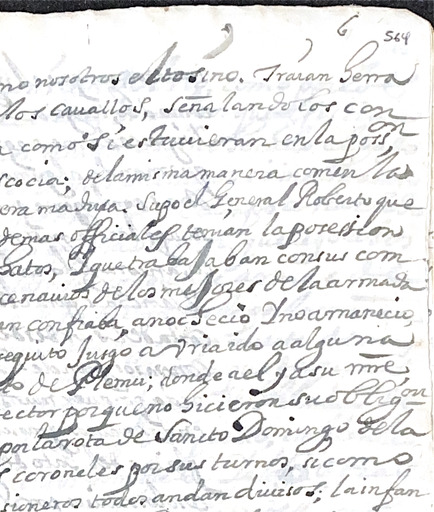 6
564
mo nosotros el tosino. Traian herra
los cavallos, señalandolos con
a como si estuvieran en la poss.on
scocia; de la misma manera comen las
era madura. Supo el General Roberto que
demas officiales tenian la posession
hatos, y que trabajaban con sus com
cenarios de los mejores de la armada
an confiaba, anochecio y no amanecio,
seguito Jusgo avria ido a alguna
to de Plemu; donde a el y a su mre,
ector porque no hicieron su oblig.on
por la rota de Sancto Domingo de la
s coroneles por sus turnos, si como
sioneros todos andan divisos; la infan